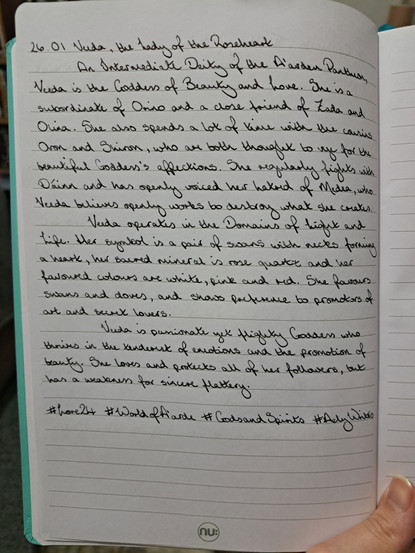 26.01 Veda, the Lady of the Roseheart
An Intermediate Deity of the A'arden Pantheon,
Veda is the Goddess of Beauty and Love. She is a
subordinate of Orino and a close friend of Zada and
Olira. She also spends a lot of time with the cousins
Oron and Shiron, who are both thought to vye for the
beautiful Goddess's affections. She regularly fights with
Dáinn and has openly voiced her hatred of Medea, who
Veda believes openly works to destroy what she creates.
Veda operates in the Domains of Light and
Life. Her symbol is a pair of swans with necks forming
a heart, her sacred mineral is rose quartz and her
favoured colours are white, pink and red. She favours
swans and doves, and shows preference to promotors of
art and secret lovers.
Veda is passionate yet flighty Goddess who
thrives in the tenderest of emotions and the promotion of
beauty. She loves and protects all of her followers, but
has a weakness for sincere flattery.
#Lore24 #WorldofA'arde #GodsandSpirits #AdyWrites
nu: